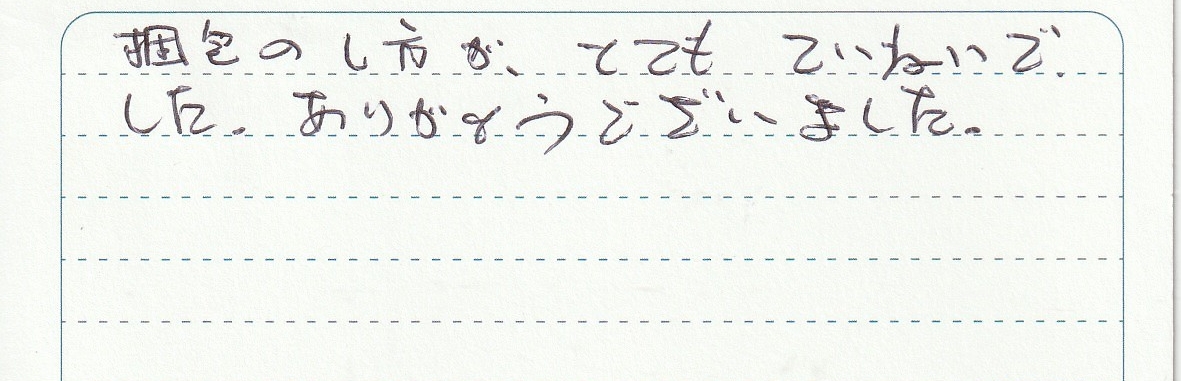 梱包のし方が、とても ていねいで
した。ありがとうございました。